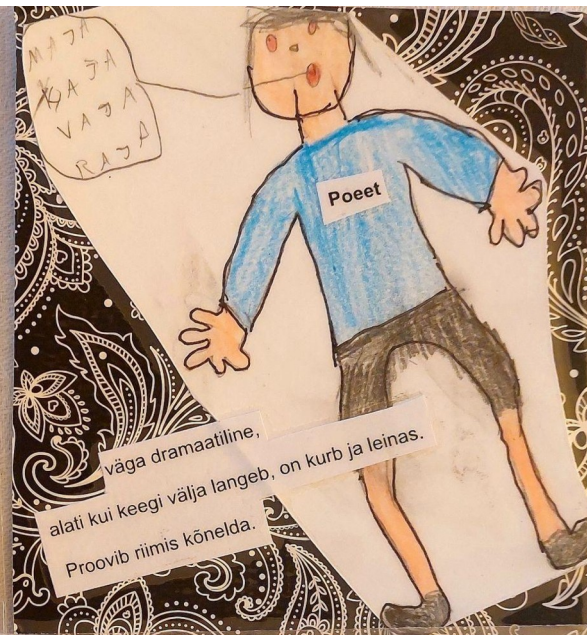 MAJA
KAJA
VAJA
RAJA
Poeet
väga dramaatiline,
alati kui keegi välja langeb, on kurb ja leinas.
Proovib riimis kõnelda.